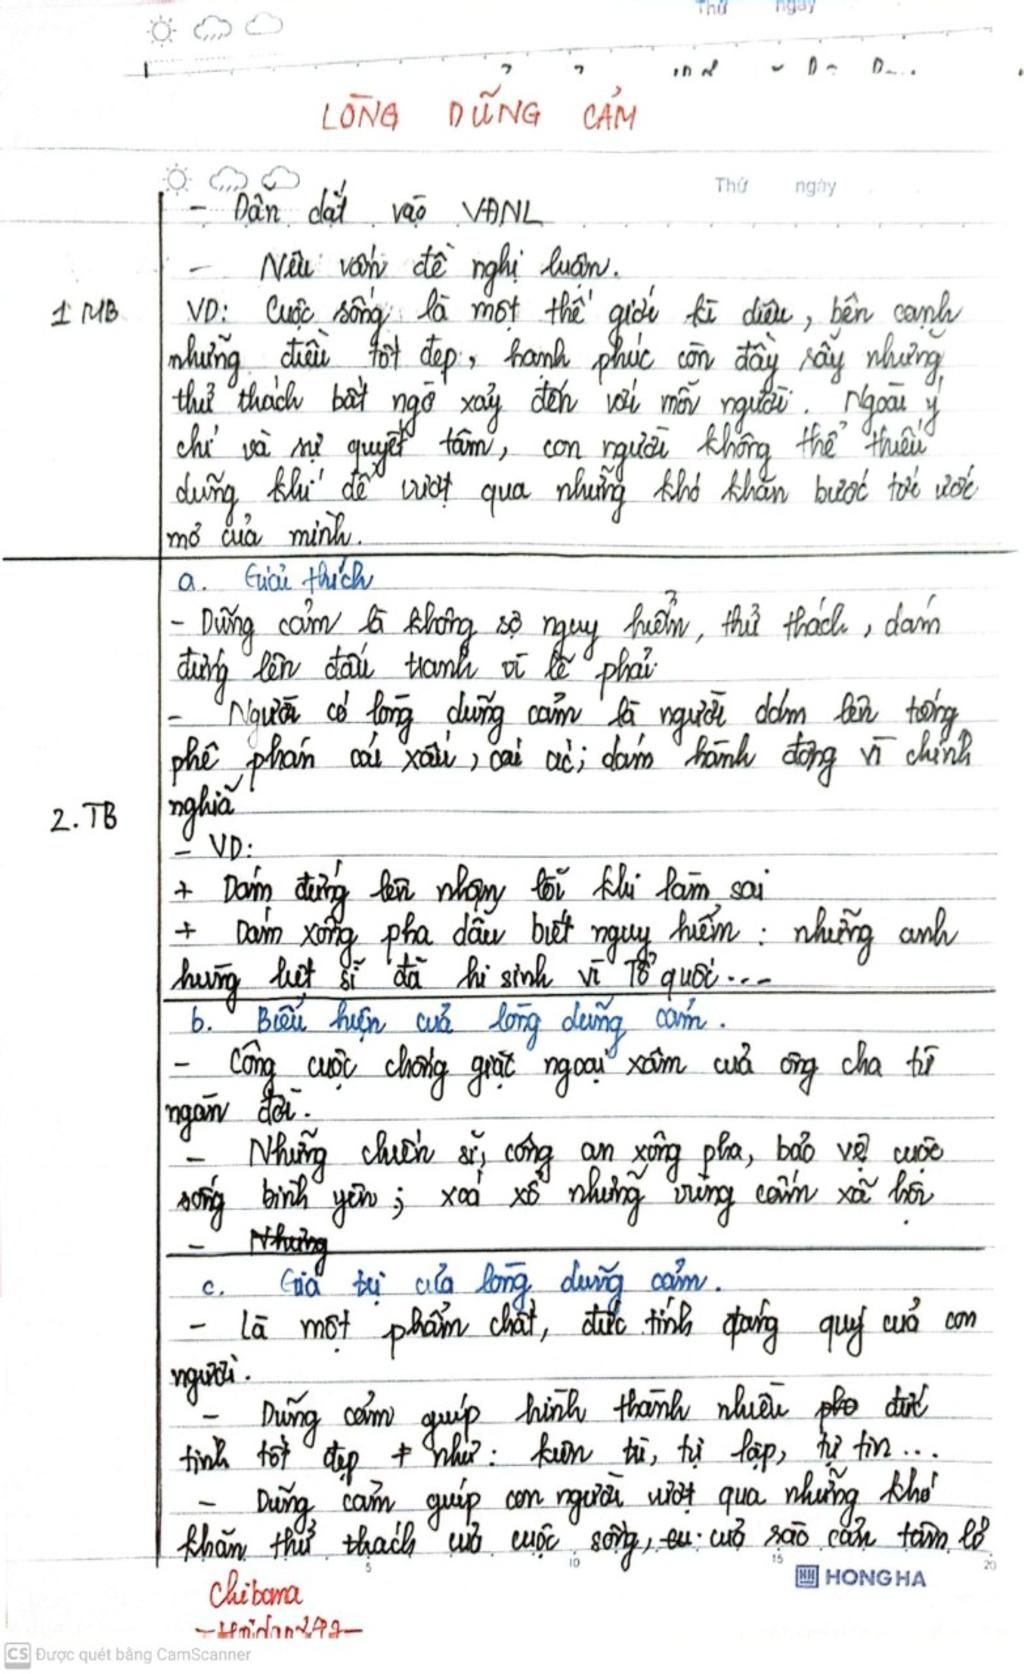 Thứ ngày
LÒNG DŨNG CẢM
Thứ ngày
- Dẫn dắt vào VĐNL
- Nêu vấn đề nghị luận.
1 MB
VD: Cuộc sống là một thế giới kì diệu, bên cạnh
những điều tốt đẹp, hạnh phúc còn đầy rẫy những
thử thách bất ngờ xảy đến với mỗi người. Ngoài ý
chí và sự quyết tâm, con người không thể thiếu
dũng khí để vượt qua những khó khăn bước tới ước
mơ của mình.
a. Giải thích
- Dũng cảm là không sợ nguy hiểm, thử thách, dám
đứng lên đấu tranh vì lẽ phải
- Người có lòng dũng cảm là người dám lên tiếng
phê phán cái xấu, cái ác; dám hành động vì chính
nghĩa
2. TB
- VD:
+ Dám đứng lên nhận lỗi khi làm sai
+ Dám xông pha dẫu biết nguy hiểm: những anh
hùng liệt sĩ đã hi sinh vì Tổ quốc...
b. Biểu hiện của lòng dũng cảm.
- Công cuộc chống giặc ngoại xâm của ông cha từ
ngàn đời.
- Những chiến sĩ, công an xông pha, bảo vệ cuộc
sống bình yên; xoá xổ những vùng cấm xã hội
- Nhưng
c. Giá trị của lòng dũng cảm.
- Là một phẩm chất, đức tính đáng quý của con
người.
- Dũng cảm giúp hình thành nhiều đức
tính tốt đẹp + như: kiên trì, tự lập, tự tin...
- Dũng cảm giúp con người vượt qua những khó
khăn thử thách của cuộc sống,
5 10 15 20
HONG HA
Chibana
CS Được quét bằng CamScanner